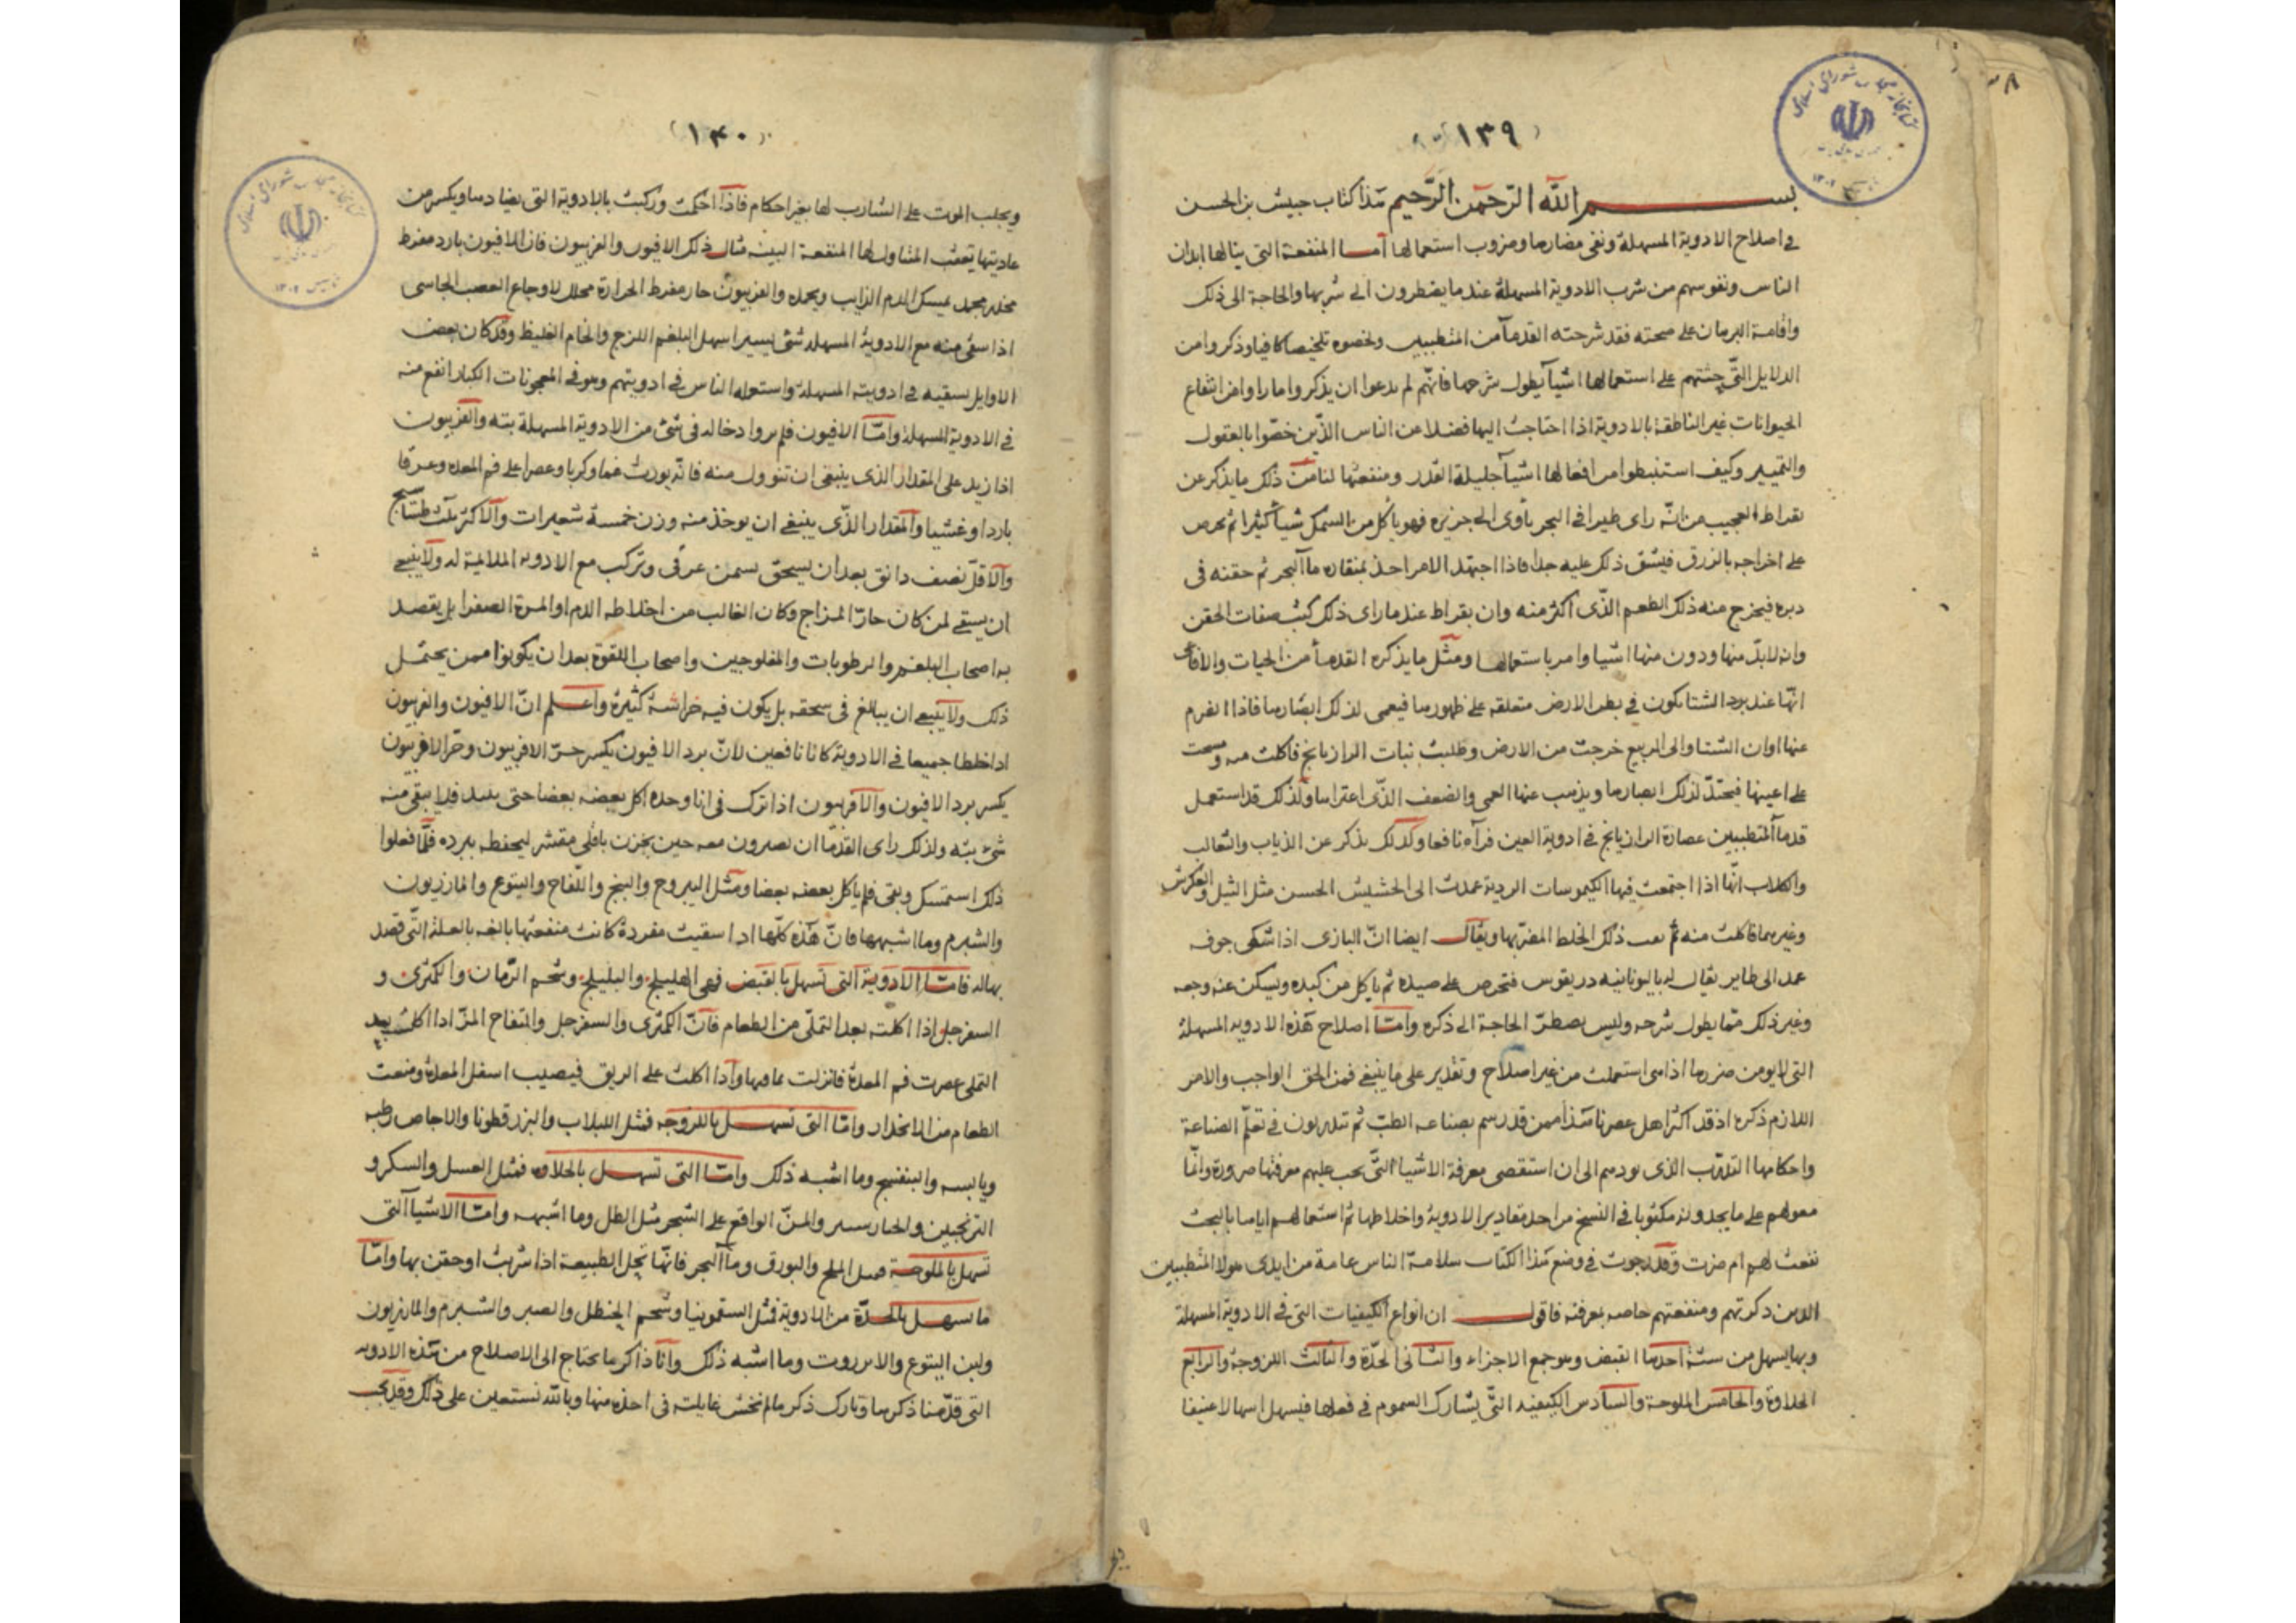 ١٣٩
بسم الله الرحمن الرحيم هذا كتاب حبيش بن الحسن
في اصلاح الادوية المسهلة ونفي مضارها وضروب استعمالها اما المنفعة التي ينالها ابدان
الناس ونفوسهم من شرب الادوية المسهلة عندما يضطرون الى شربها والحاجة الى ذلك
واقامة البرهان على صحته فقد شرحته القدماء من المتطببين ولخصوه تلخيصا كافيا وذكروا من
الدلايل التي حثتهم على استعمالها اشياء يطول شرحها فانهم لم يدعوا ان يذكروا ما راوا من انتفاع
الحيوانات غير الناطقة بالادوية اذا احتاجت اليها فضلا عن الناس الذين خصوا بالعقول
والتمييز وكيف استنبطوا من افعالها اشياء جليلة القدر ومنفعتها لنا من ذلك ما يذكر عن
بقراط العجيب من انه راى طيرا في البحر ياوى الى جزيره فهو ياكل من السمك شيأ كثيرا ثم يحرص
على اخراجه بالزرق فيشق ذلك عليه جدا فاذا اجتهد الامر اخذ بمنقاره ماء البحر ثم حقنه في
دبره فيخرج منه ذلك الطعم الذي اكثر منه وان بقراط عندما راى ذلك كتب صفات الحقن
وانه لابد منها ودون منها اشيا وامر باستعمالها ومثل ما يذكره القدماء من الحيات والافاعى
انها عند برد الشتا تكون في بطن الارض متعلقه على ظهورها فيعمى لذلك ابصارها فاذا انصرم
عنها اوان الشتا والى الربيع خرجت من الارض وطلبت نبات الرازيانج فاكلت منه ومسحت
على اعينها فيحتد لذلك ابصارها ويذهب عنها العمى والضعف الذي اعتراها ولذلك قد استعمل
قدماء المتطببين عصارة الرازيانج في ادوية العين فرآه نافعا وكذلك يذكر عن الذياب والثعالب
والكلاب انها اذا اجتمعت فيها الكيموسات الردية عمدت الى الحشيش الحسن مثل الثيل والعكرش
وغيرهما فاكلت منه ثم تعب ذلك الخلط المضر بها ويقال ايضا ان البازى اذا شكى جوفه
عمد الى طاير يقال له باليونانيه دريقوس فتحرص على صيده ثم ياكل من كبده ويسكن عنه وجعه
وغير ذلك مما يطول شرحه وليس يضطر الحاجة الى ذكره واما اصلاح هذه الادويه المسهلة
التي لا يومن ضررها اذا هى استعملت من غير اصلاح وتقدير على ما ينبغي فمن الحق الواجب والامر
اللازم ذكره اذ قد اكثر اهل عصرنا هذا ممن قد رسم بصناعه الطب ثم يتدربون في تعلم الصناعة
واحكامها التدرب الذى يودهم الى ان استقصى معرفة الاشياء التي يجب عليهم معرفتها ضرورة وانما
معولهم على ما يجدونه مكتوبا في النسخ من اخذ مقادير الادوية واخلاطها ثم استعمالهم اياها بالبحث
نفعت لهم ام ضرت وقد رجوت في وضع هذا الكتاب سلامة الناس عامة من ايدى هولا المتطببين
الذين ذكرتهم ومنفعتهم خاصه بمعرفته فاقول ان انواع الكيفيات التي في الادوية المسهلة
وبها يسهل من ستة احدها القبض وهو جمع الاجزاء والثاني الحدة والثالث اللزوجة والرابع
الحلاوة والخامس الملوحة والسادس الكيفيه التي يشارك السموم في فعلها فيسهل اسهالا عنيفا
١٤٠
ويجلب الموت على الشارب لها بغير احكام فاذا احكمت وركبت بالادوية التي يضادها ويكسر من
عاديتها يتعقب المتناول لها المنفعة البينه مثال ذلك الافيون والفربيون فان الافيون بارد مفرط
مخدر مجمد يمسك الدم الذايب ويجمده والفربيون حار مفرط الحرارة محلل لاوجاع العصب الجاسى
اذا سقى منه مع الادوية المسهله شئ يسير اسهل البلغم اللزج والخام الغليظ وقد كان بعض
الاوايل يسقيه في ادويته المسهلة واستعمله الناس في ادويتهم وهو في المعجونات الكبار انفع منه
في الادوية المسهلة واما الافيون فلم يروا دخاله في شئ من الادوية المسهلة بته والفربيون
اذا زيد على المقدار الذى ينبغي ان تنوول منه فانه يورث غما وكربا وعصرا على فم المعده وعرقا
باردا وغشيا والمقدار الذى ينبغي ان يوخذ منه وزن خمسة شعيرات والاكثر ثلث طساسيج
والاقل نصف دانق بعد ان يسحق بسمن عرقى وتركب مع الادويه الملايمة له ولا ينبغي
ان يسقى لمن كان حار المزاج وكان الغالب من اخلاطه الدم او المرة الصفرا بل يقصد
به اصحاب البلغم والرطوبات والمفلوجين واصحاب اللقوة بعد ان يكونوا ممن يحتمل
ذلك ولا ينبغي ان يبالغ في سحقه بل يكون فيه خراشة كثيرة واعلم ان الافيون والفربيون
اذا خلطا جميعا في الادوية كانا نافعين لان برد الافيون يكسر حر الافربيون وحر الافربيون
يكسر برد الافيون والافربيون اذا ترك في انا وحده اكل بعضه بعضا حتى يبيد فلا يبقى منه
شئ بته ولذلك راى القدما ان يصيرون معه حين يخزن باقلى مقشر ليحفظه ببرده فلما فعلوا
ذلك استمسك وبقى فلم ياكل بعضه بعضا ومثل اليبروح والبنج واللفاح واليتوع والمازريون
والشبرم وما اشبهها فان هذه كلها اذا سقيت مفردة كانت منفعتها بالغه بالعلة التي قصد
بها له فاما الادوية التي تسهل بالقبض فهي الهليلج والبليلج وشحم الرمان والكمثرى و
السفرجل اذا اكلت بعد التملى من الطعام فان الكمثرى والسفرجل والتفاح المز اذا اكلت بعيد
التملى عصرت فم المعدة فانزلت عما فيها واذا اكلت على الريق فيصيب اسفل المعدة ومنعت
الطعام من الانحدار واما التي تسهل باللزوجه فمثل اللبلاب والبزر قطونا والاجاص رطبه
ويابسه والبنفسج وما اشبه ذلك واما التي تسهل بالحلاوه فمثل العسل والسكر و
الترنجبين والخيار شنبر والمن الواقع على الشجر مثل الطل وما اشبهه واما الاشياء التي
تسهل بالملوحة فمثل الملح والبورق وماء البحر فانها تحل الطبيعة اذا شربت او حقن بها واما
ما يسهل بالحدة من الادوية فمثل السقمونيا وشحم الحنظل والصبر والشبرم والمازريون
ولبن اليتوع والانزروت وما اشبه ذلك وانا ذاكر ما يحتاج الى الاصلاح من هذه الادويه
التي قدمنا ذكرها وتارك ذكر ما لم نخش غايلته في اخذه منها وبالله نستعين على ذلك وقد يجب